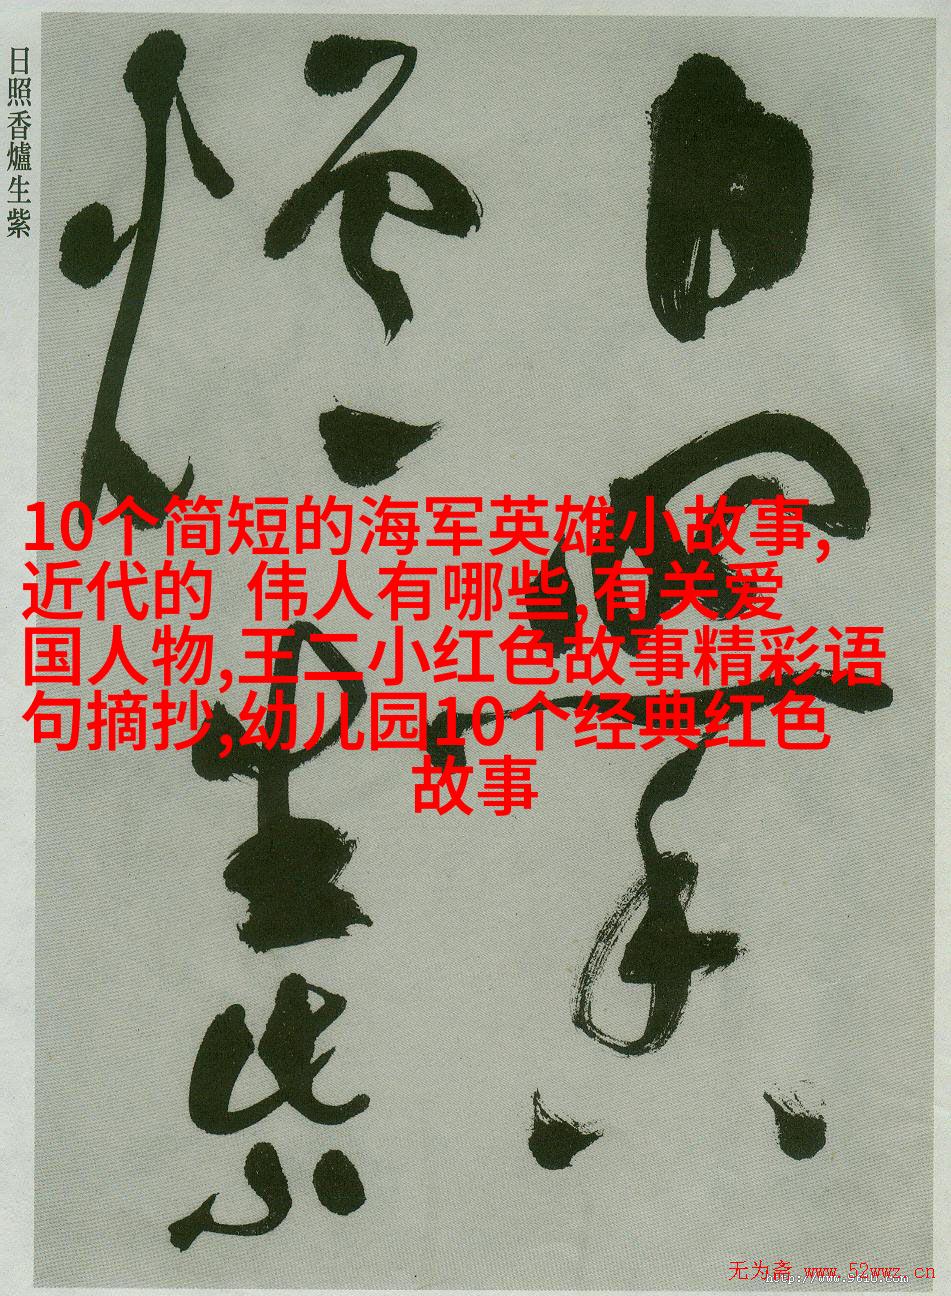 日照香爐生紫
日照香
爐生紫
10个简短的海军英雄小故事,
近代的 伟人有哪些,有关爱
国人物,王二小红色故事精彩语
句摘抄,幼儿园10个经典红色
故事
无为斋 www.52wwz.cn
http://www.9610.com